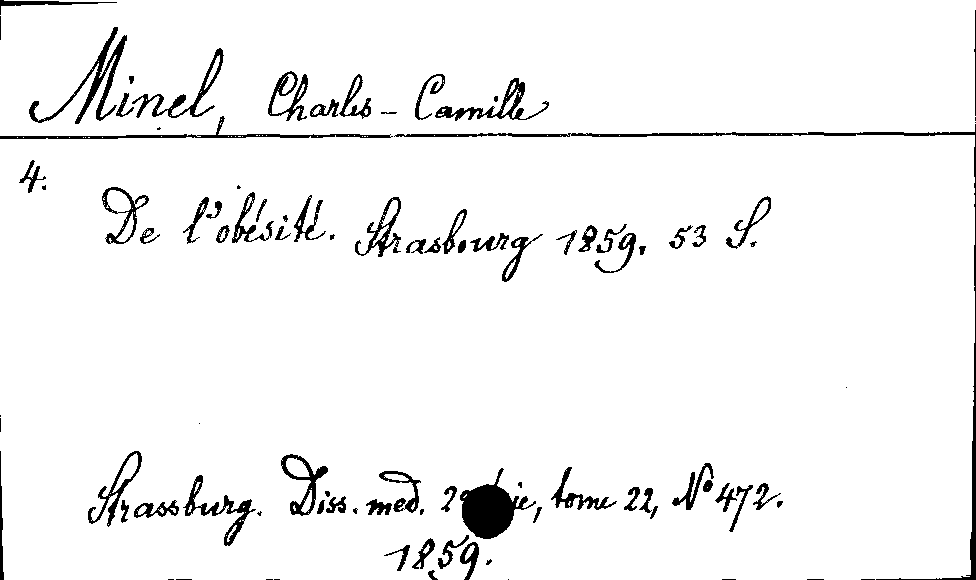 Minel, Charles-Camille
4.
De l'obésité. Strasbourg 1859. 53 S.
Strassburg. Diss. med. tome 22, Nº 472.
1859.